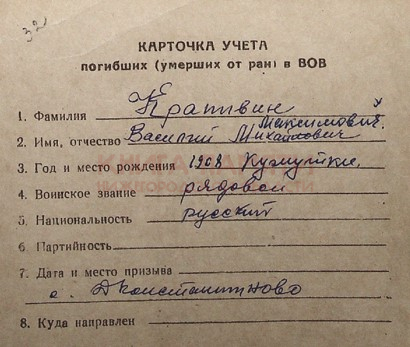 КАРТОЧКА УЧЕТА
погибших (умерших от ран) в ВОВ
1. Фамилия
Максимович
2. Имя, отчество Василий Михайлович
3. Год и место рождения 1908
4. Воинское звание рядовой
5. Национальность русский
6 Партийность
7. Дата и место призыва
с. Д Константиново
8. Куда направлен